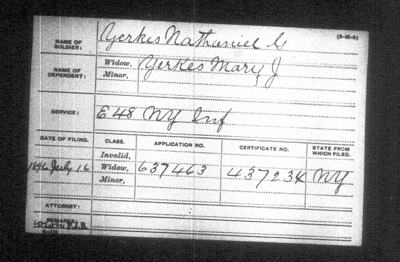 NAME OF SOLDIER: Yerkes Nathaniel G
NAME OF DEPENDENT: Widow, Yerkes Mary J
Minor,
SERVICE: E 48 NY Inf
DATE OF FILING. CLASS. APPLICATION NO. CERTIFICATE NO. STATE FROM WHICH FILED.
Invalid,
1896 July 16 Widow, 637463 437234 NY
Minor,
ATTORNEY:
REMARKS: